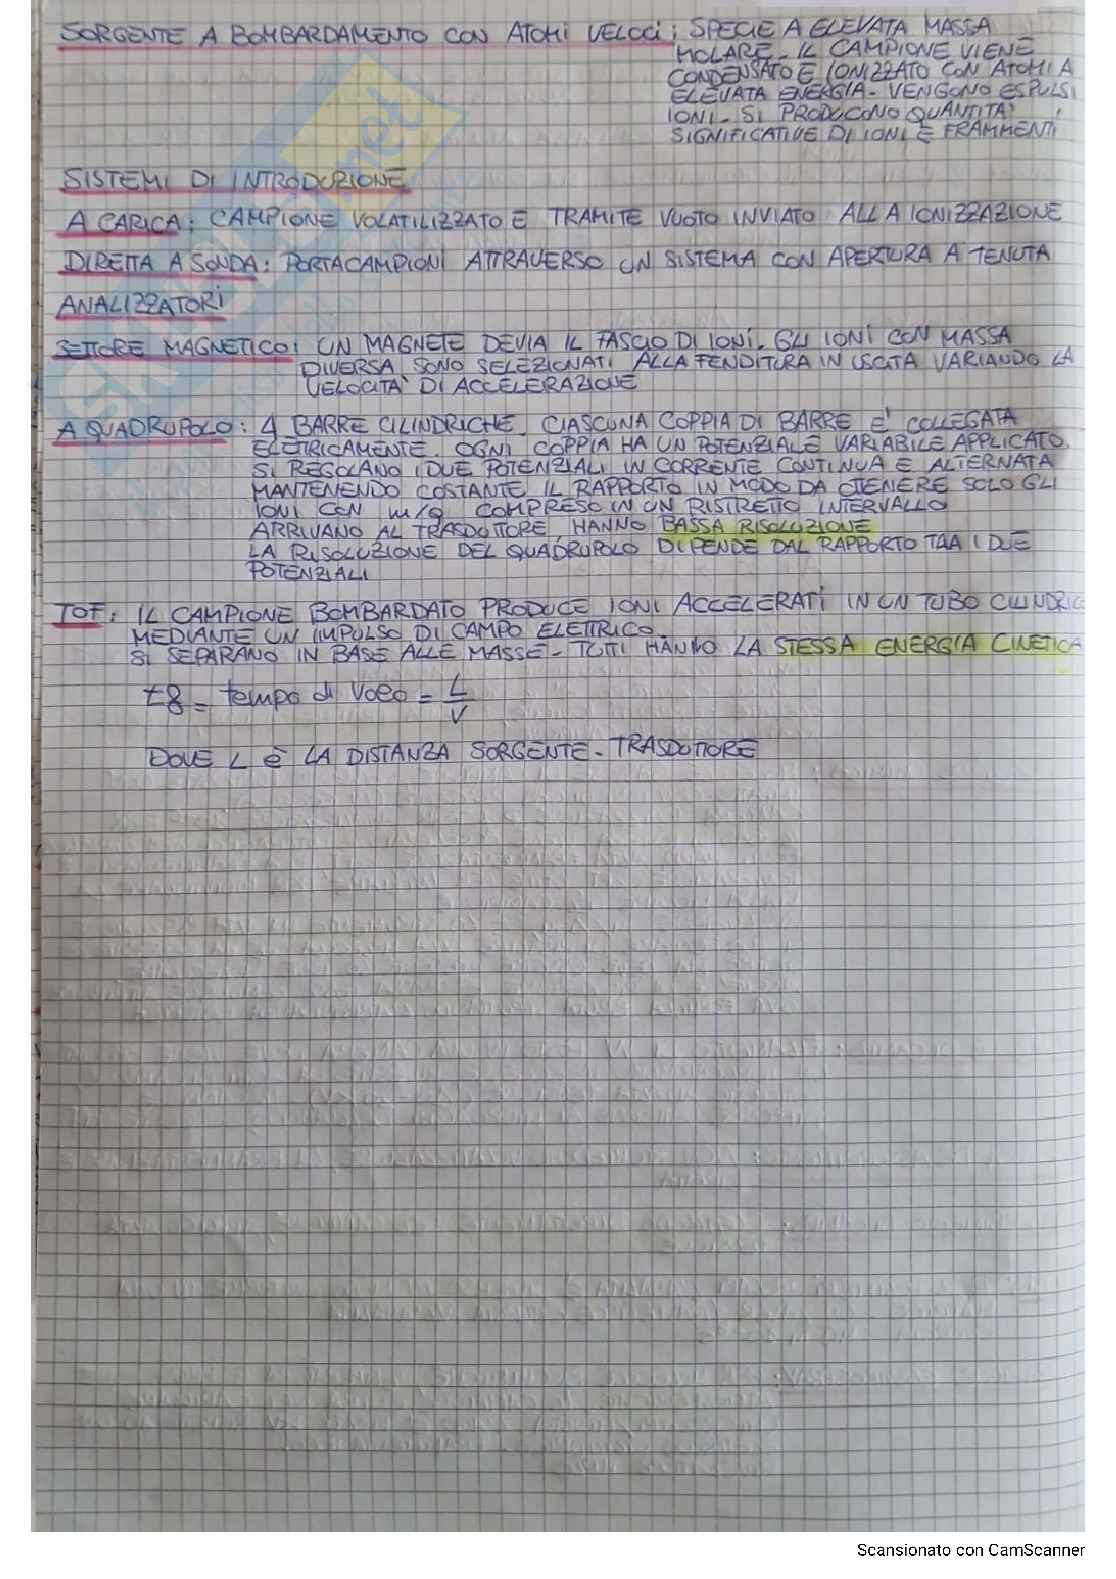 SORGENTE A BOMBARDAMENTO CON ATOMI VELOCI: SPECIE A ELEVATA MASSA
MOLARE. IL CAMPIONE VIENE
CONDENSATO E IONIZZATO CON ATOMI A
ELEVATA ENERGIA. VENGONO ESPULSI
IONI. SI PRODUCONO QUANTITA'
SIGNIFICATIVE DI IONI E FRAMMENTI
SISTEMI DI INTRODUZIONE
A CARICA: CAMPIONE VOLATILIZZATO E TRAMITE VUOTO INVIATO ALLA IONIZZAZIONE
DIRETTA A SONDA: PORTACAMPIONI ATTRAVERSO UN SISTEMA CON APERTURA A TENUTA
ANALIZZATORI
SETTORE MAGNETICO: UN MAGNETE DEVIA IL FASCIO DI IONI. GLI IONI CON MASSA
DIVERSA SONO SELEZIONATI ALLA FENDITURA IN USCITA VARIANDO LA
VELOCITA' DI ACCELERAZIONE
A QUADRUPOLO: 4 BARRE CILINDRICHE. CIASCUNA COPPIA DI BARRE E' COLLEGATA
ELETTRICAMENTE. OGNI COPPIA HA UN POTENZIALE VARIABILE APPLICATO.
SI REGOLANO I DUE POTENZIALI IN CORRENTE CONTINUA E ALTERNATA
MANTENENDO COSTANTE IL RAPPORTO IN MODO DA OTENERE SOLO GLI
IONI CON m/q COMPRESO IN UN RISTRETTO INTERVALLO
ARRIVANO AL TRASDUTTORE, HANNO BASSA RISOLUZIONE
LA RISOLUZIONE DEL QUADRUPOLO DIPENDE DAL RAPPORTO TRA I DUE
POTENZIALI
TOF: IL CAMPIONE BOMBARDATO PRODUCE IONI ACCELERATI IN UN TUBO CILINDRIC
MEDIANTE UN IMPULSO DI CAMPO ELETTRICO.
SI SEPARANO IN BASE ALLE MASSE. TUTTI HANNO LA STESSA ENERGIA CINETICA
tf = tempo di volo = L/V
DOVE L È LA DISTANZA SORGENTE-TRASDUTTORE
Scansionato con CamScanner